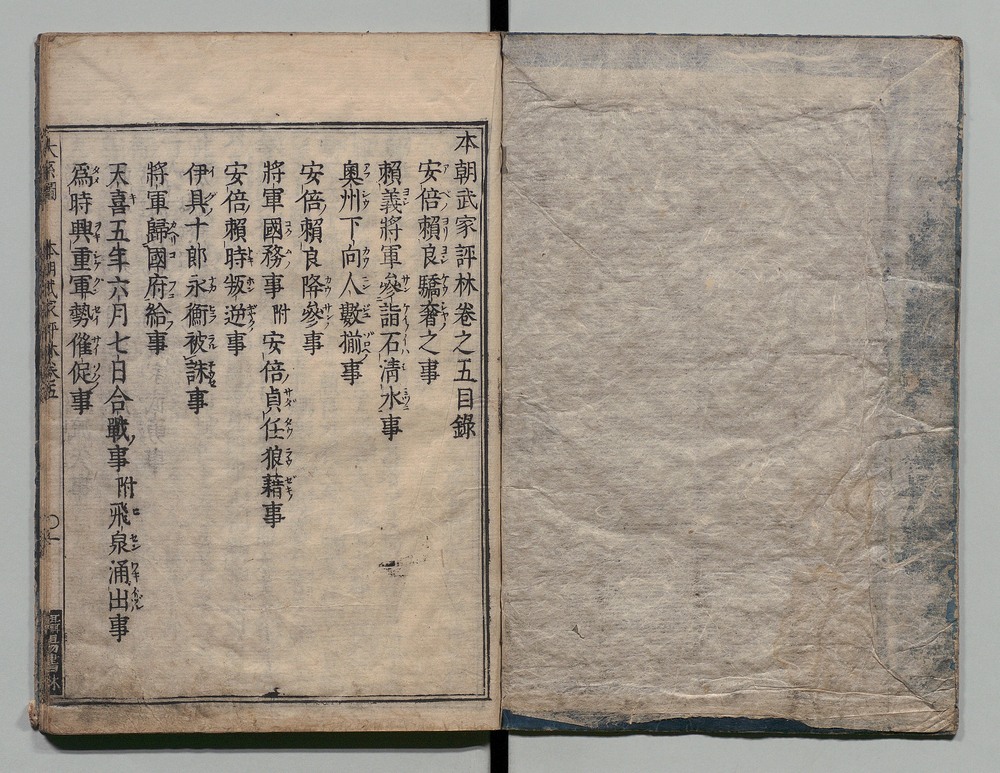 本朝武家評林卷之五目錄
安倍賴良驕奢之事
賴義將軍參詣石淸水事
奧州下向人數揃事
安倍賴良降參事
將軍國務事附安倍貞任狼藉事
安倍賴時叛逆事
伊具十郎永衡被誅事
將軍歸國府給事
天喜五年六月七日合戰事附飛泉涌出事
爲時興重軍勢催促事
本朝武家評林卷五